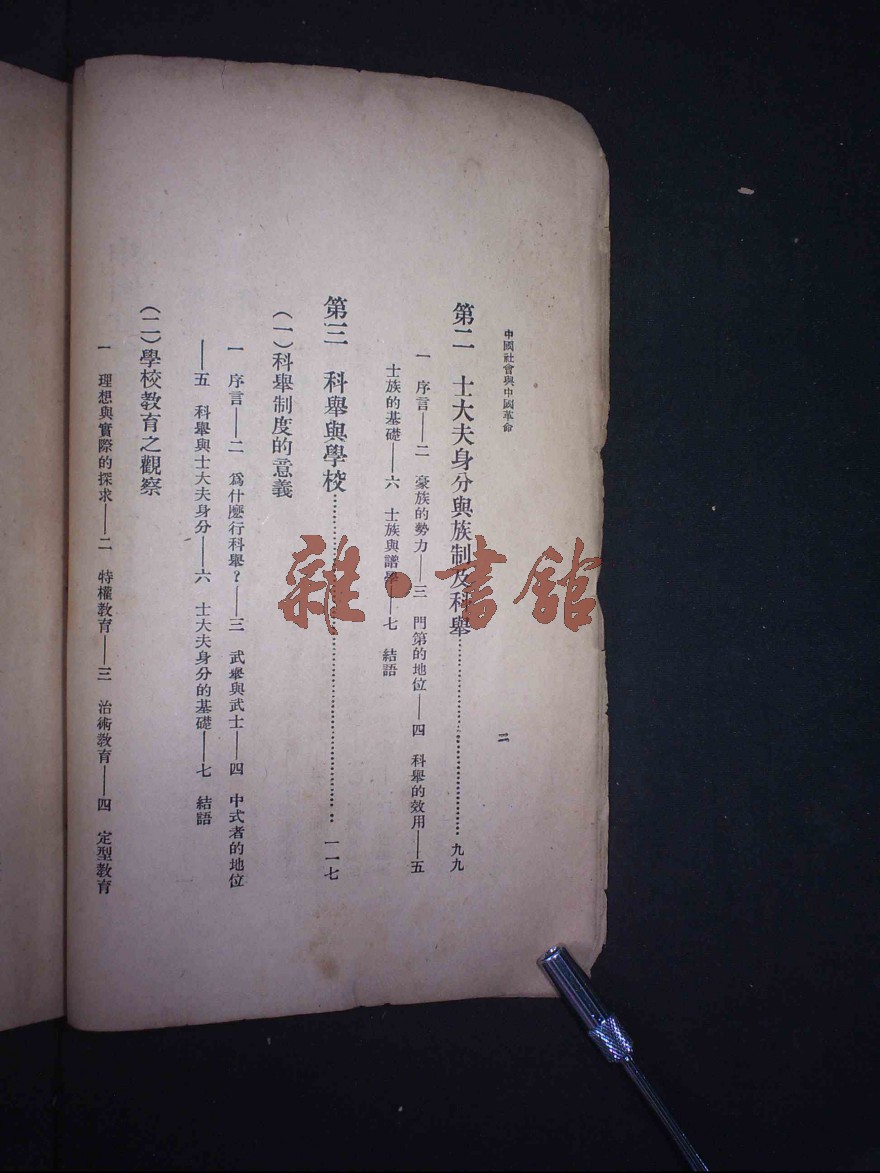 中國社會與中國革命
二
第二　士大夫身分與族制及科舉……九九
一　序言——二　豪族的勢力——三　門第的地位——四　科舉的效用——五
士族的基礎——六　士族與譜學——七　結語
第三　科舉與學校……一一七
（一）科舉制度的意義
一　序言——二　爲什麼行科舉？——三　武舉與武士——四　中式者的地位
——五　科舉與士大夫身分——六　士大夫身分的基礎——七　結語
（二）學校教育之觀察
一　理想與實際的探求——二　特權教育——三　治術教育——四　定型教育
雜·書館